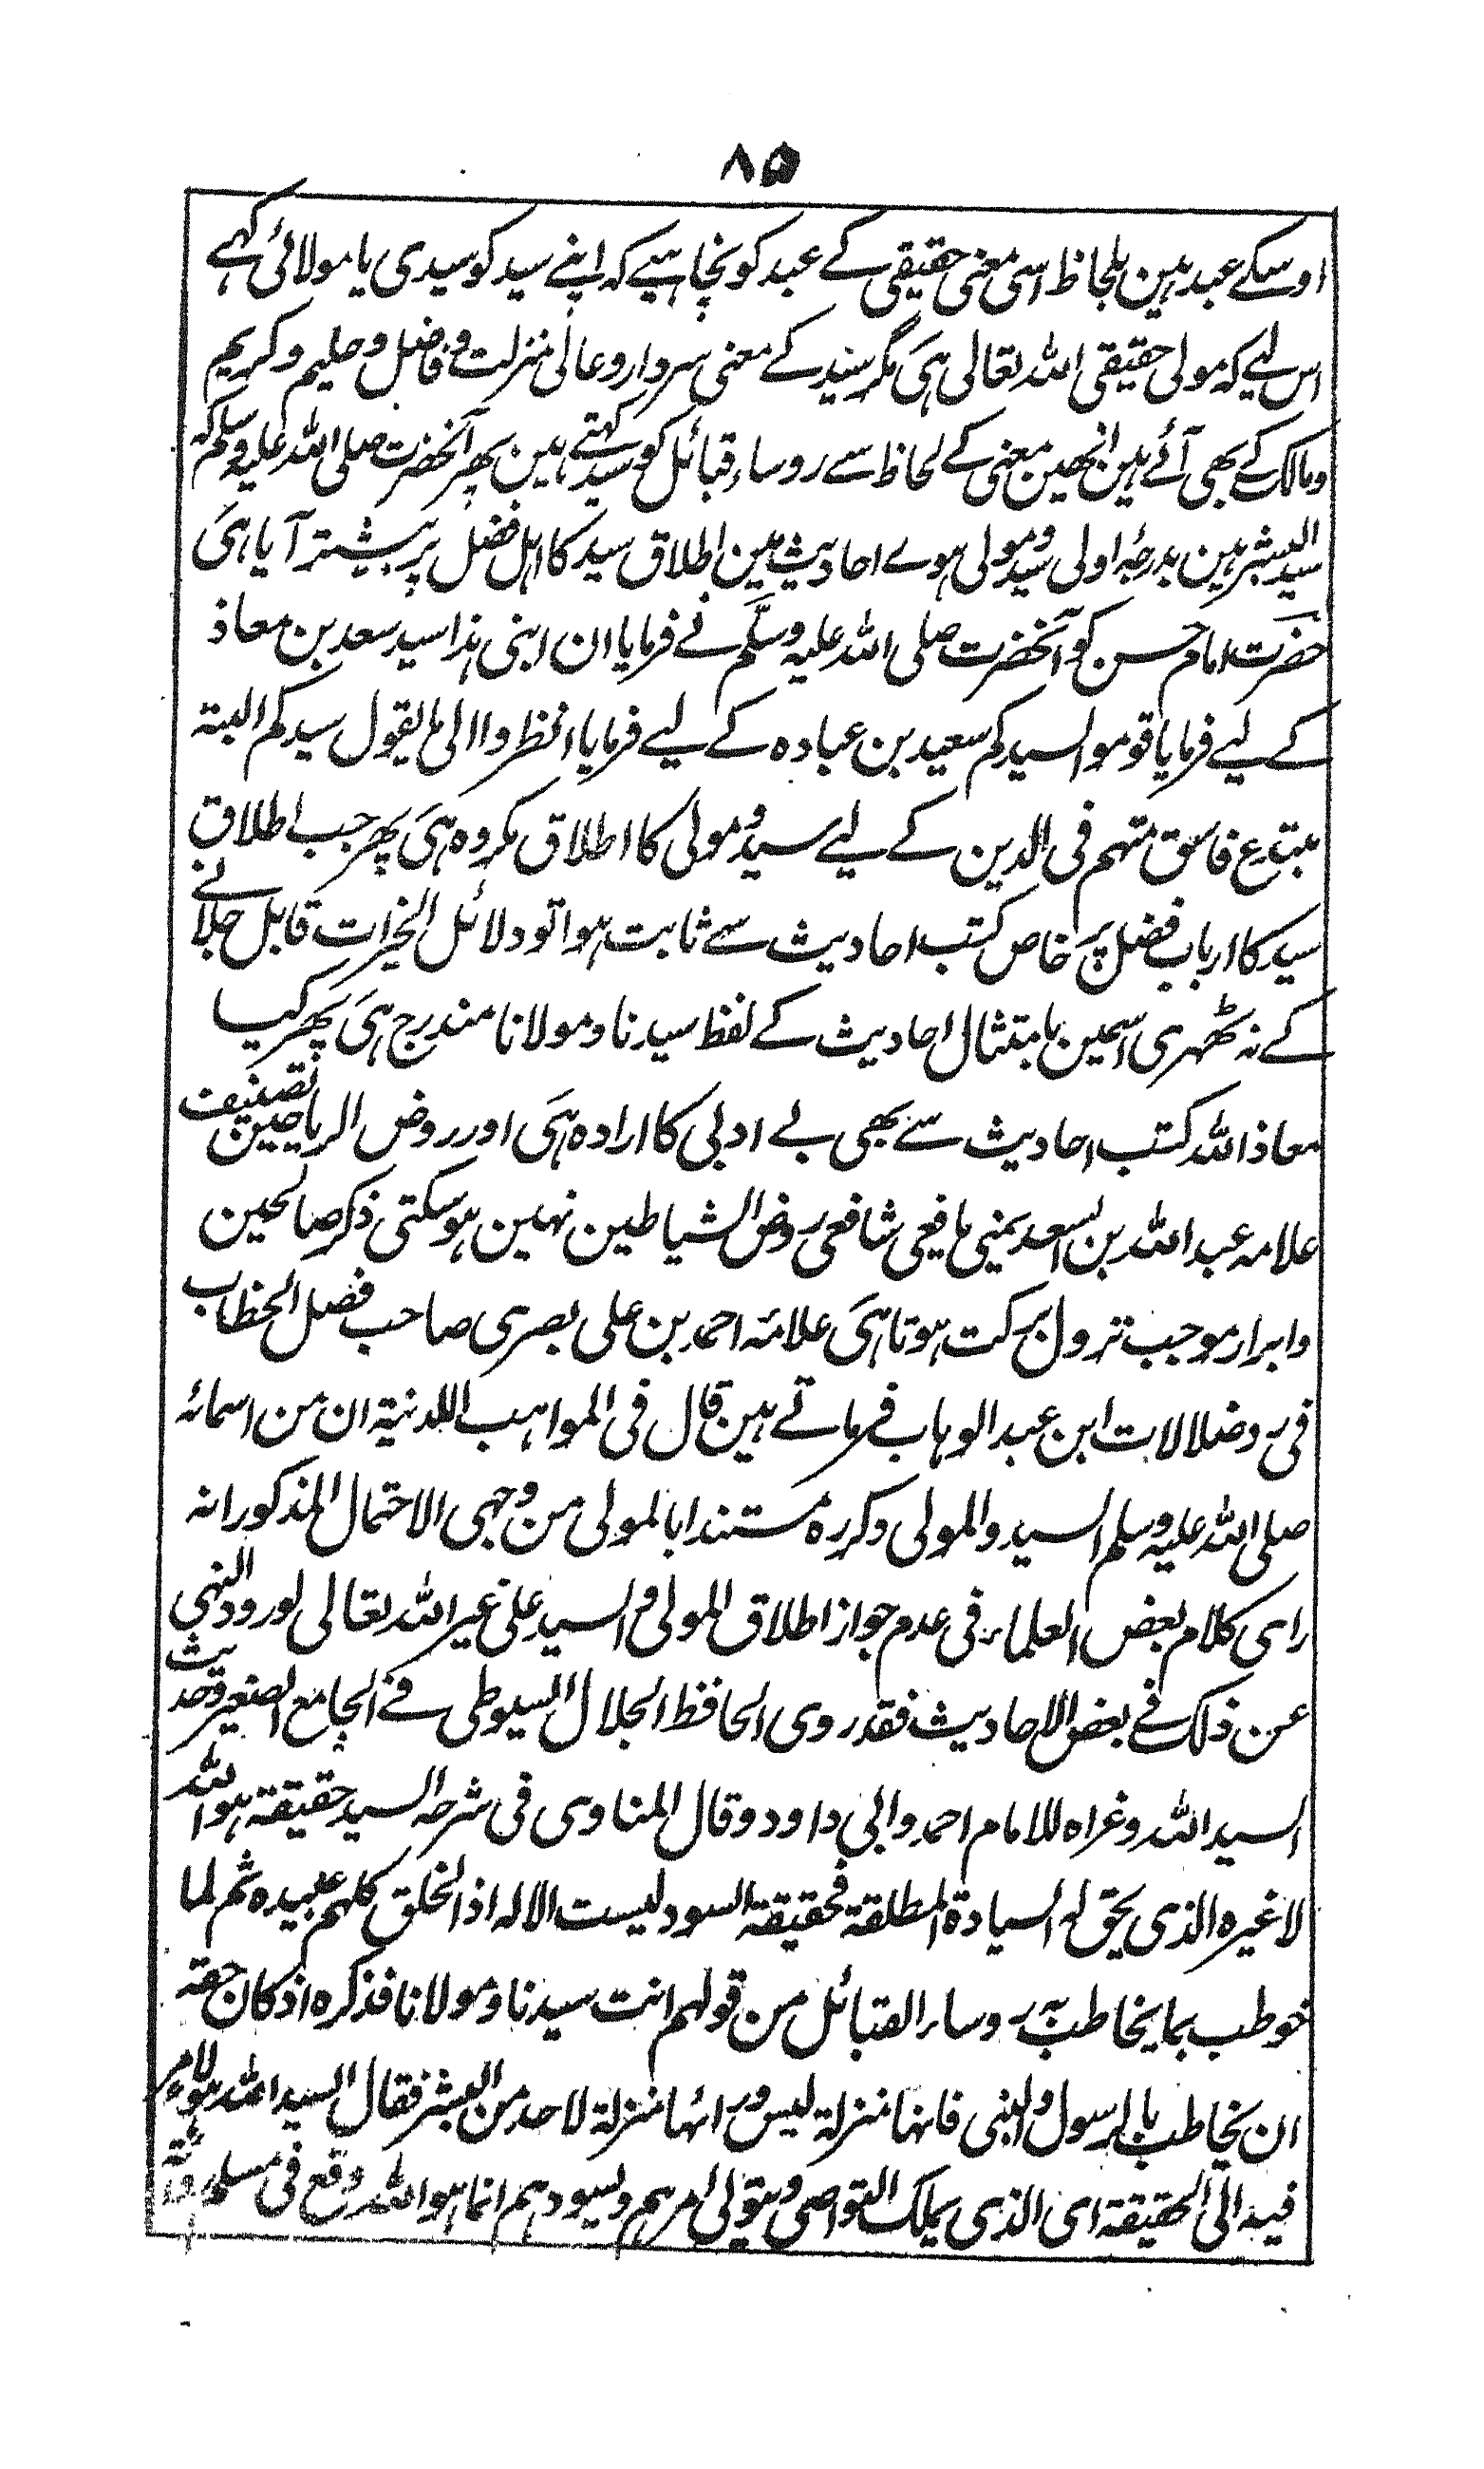 ۸۵
اوسکے عبد ہین بلحاظ اسی معنی حقیقی کے عبد کو نچاہیے کہ اپنے سید کو سیدی یا مولائی کہے
اس لیے کہ مولی حقیقی اللہ تعالی ہی مگر سید کے معنی سردار و عالی منزلت و فاضل و حلیم و کریم
و مالک کے بھی آئے ہین انھین معنی کے لحاظ سے روساء قبائل کو سید کہتے ہین پھر آنحضرت صلی اللہ علیہ وسلم کہ
سید البشر ہین بدرجۂ اولی سید و مولی ہوے احادیث مین اطلاق سید کا اہل فضل پر بیشتر آیا ہی
حضرت امام حسن کو آنحضرت صلی اللہ علیہ وسلم نے فرمایا ان ابنی ہذا سید سعد بن معاذ
کے لیے فرمایا قوموا لسیدکم سعید بن عبادہ کے لیے فرمایا انظروا الی ما یقول سیدکم البتہ
مبتدع فاسق متہم فی الدین کے لیے سید و مولی کا اطلاق مکروہ ہی پھر جب اطلاق
سید کا ارباب فضل پر خاص کتب احادیث سے ثابت ہوا تو دلائل الخیرات قابل جلانے
کے نہ ٹھہری اسمین بامتثال احادیث کے لفظ سیدنا و مولانا مندرج ہی پھر کیا
معاذ اللہ کتب احادیث سے بھی بے ادبی کا ارادہ ہی اور روض الریاحین تصنیف
علامہ عبد اللہ بن اسعد یمنی یافعی شافعی روض الشیاطین نہین ہوسکتی ذکر صالحین
و ابرار موجب نزول برکت ہوتا ہی علامہ احمد بن علی بصری صاحب فصل الخطاب
فی رد ضلالات ابن عبد الوہاب فرماتے ہین قال فی المواہب اللدنیة ان من اسمائہ
صلی اللہ علیہ وسلم السید و المولی وکررہ مستندا بالمولی من وجہی الاحتمال المذکور انہ
رای کلام بعض العلماء فی عدم جواز اطلاق المولی و السید علی غیر اللہ تعالی لورود النہی
عن ذلک فے بعض الاحادیث فقد روی الحافظ الجلال السیوطی فے الجامع الصغیر حدیث
السید اللہ وعزاہ للامام احمد و ابی داود وقال المناوی فی شرحہ السید حقیقة ہو اللہ
لا غیرہ الذی یحق لہ السیادة المطلقة فحقیقة السود لیست الا لہ اذ الخلق کلہم عبیدہ ثم لما
خوطب بما یخاطب بہ روساء القبائل من قولہم انت سیدنا و مولانا فذکرہ اذ کان حقہ
ان یخاطب بالرسول و النبی فانہا منزلة لیس ورائہا منزلة لاحد من البشر فقال السید اللہ
فیہ الی الحقیقة ای الذی یملک النواصی و یتولی امرہم و یسودہم انما ہو اللہ وقع فی مسلم